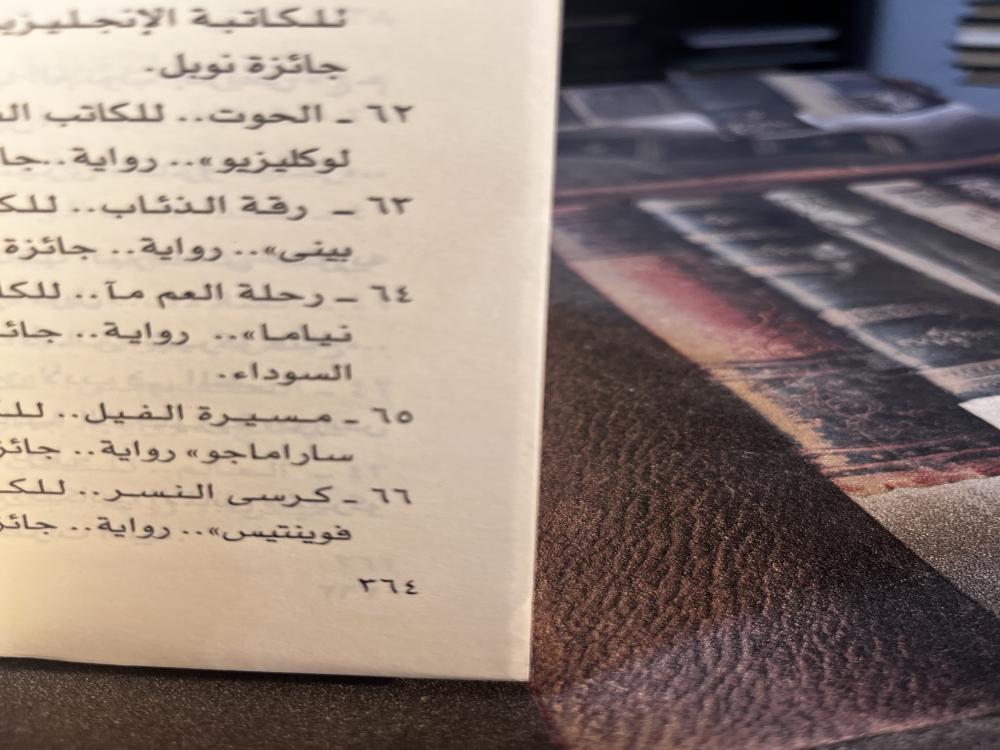 للكاتبة الإنجليزي
جائزة نوبل.
٦٢ ـ الحوت.. للكاتب
لوكليزيو».. رواية..
٦٣ ـ رقة الذئاب..
بينى».. رواية.. جائزة
٦٤ ـ رحلة العم مآ..
نياما».. رواية..
السوداء.
٦٥ ـ مسيرة الفيل..
ساراماجو» رواية..
٦٦ ـ كرسى النسر..
فوينتيس».. رواية..
٣٦٤